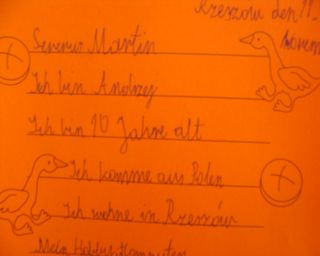 Rzeszów den 11.
Servus Martin
Ich bin Andrzej
Ich bin 10 Jahre alt
Ich komme aus Polen
Ich wohne in Rzeszów
Mein Hobby